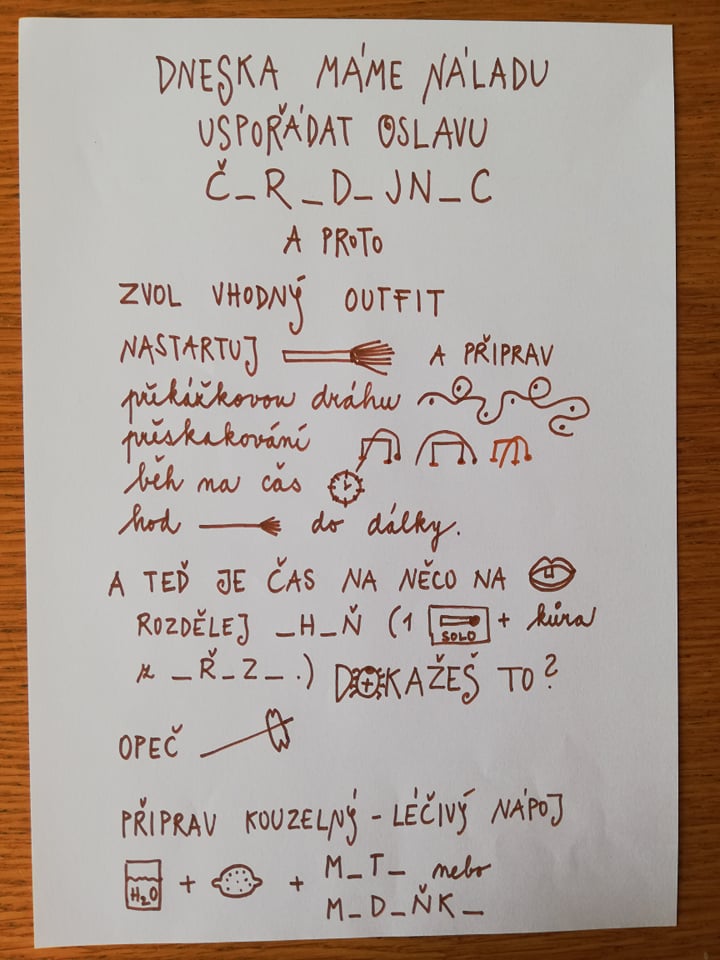 DNESKA MÁME NÁLADU
USPOŘÁDAT OSLAVU
Č_R_D_JN_C
A PROTO
ZVOL VHODNÝ OUTFIT
NASTARTUJ A PŘIPRAV
překážkovou dráhu
přeskakování
běh na čas
hod do dálky.
A TEĎ JE ČAS NA NĚCO NA
ROZDĚLEJ _H_Ň (1 SOLO + kůra
z _Ř_Z_.) DOKAŽEŠ TO?
OPEČ
PŘIPRAV KOUZELNÝ - LÉČIVÝ NÁPOJ
H2O + + M_T_ nebo
M_D_ŇK_